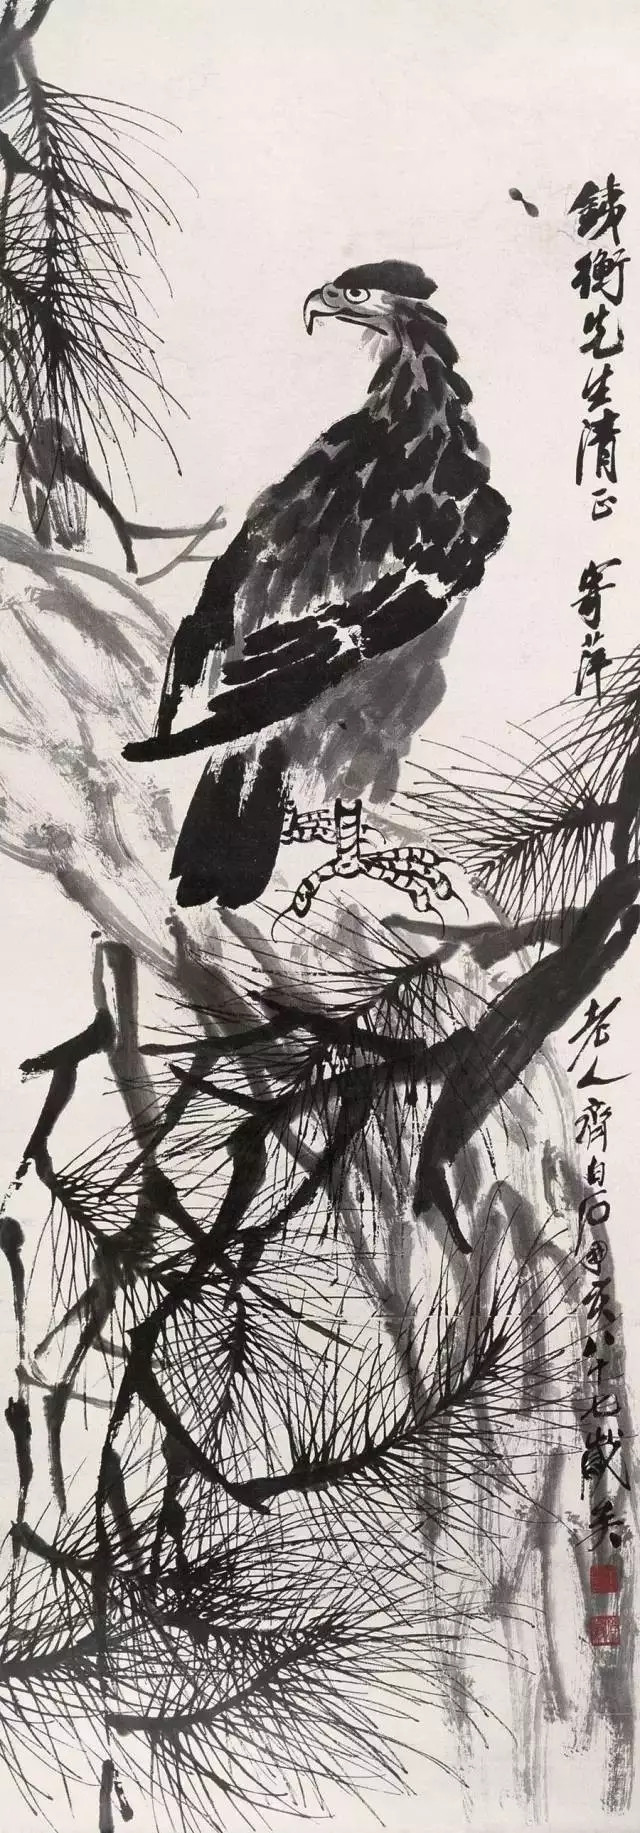 銕衡先生清正 寄萍
老人齊白石亥八十七歲矣